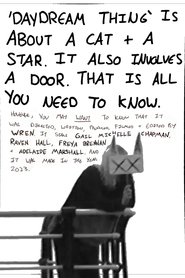 'DAYDREAM THING' IS
ABOUT A CAT + A
STAR. IT ALSO INVOLVES
A DOOR. THAT IS ALL
YOU NEED TO KNOW.
HOWEVER, YOU MAY WANT TO KNOW THAT IT
WAS DIRECTED, WRITTEN, FILMED + EDITED BY
WREN. IT STARS GAIL MICHELLE CHAPMAN,
RAVEN HALL, FREYA BRENNAN
+ ADELAIDE MARSHALL. AND
IT WAS MADE IN THE YEAR
2023.